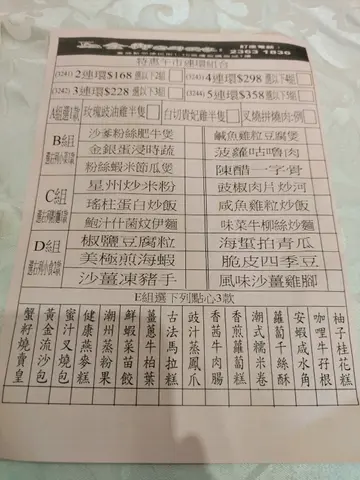 訂座電話:
2363 1836
特惠午市連環組合
(3241) 2連環$168 選以下2組 (3243) 4連環$298 選以下4組
(3242) 3連環$228 選以下3組 (3244) 5連環$358 選以下5組
A組選1款 玫瑰豉油雞半隻 白切貴妃雞半隻 叉燒拼燒肉:例
B組 沙爹粉絲肥牛煲 鹹魚雞粒豆腐煲
金銀蛋浸時蔬 菠蘿咕嚕肉
粉絲蝦米節瓜煲 陳醋一字骨
C組 星州炒米粉 豉椒肉片炒河
瑤柱蛋白炒飯 咸魚雞粒炒飯
鮑汁什菌炆伊麵 味菜牛柳絲炒麵
D組 椒鹽豆腐粒 海蜇拍青瓜
美極煎海蝦 脆皮四季豆
沙薑凍豬手 風味沙薑雞腳
E組選下列點心3款
蟹籽燒賣皇
黃金流沙包
蜜汁叉燒包
健康燕麥糕
潮州蒸粉果
鮮蝦菜苗餃
薑蔥牛柏葉
古法馬拉糕
豉汁蒸鳳爪
香茜牛肉腸
香煎蘿蔔糕
潮式糯米卷
蘿蔔千絲酥
安蝦咸水角
咖哩牛孖根
柚子桂花糕